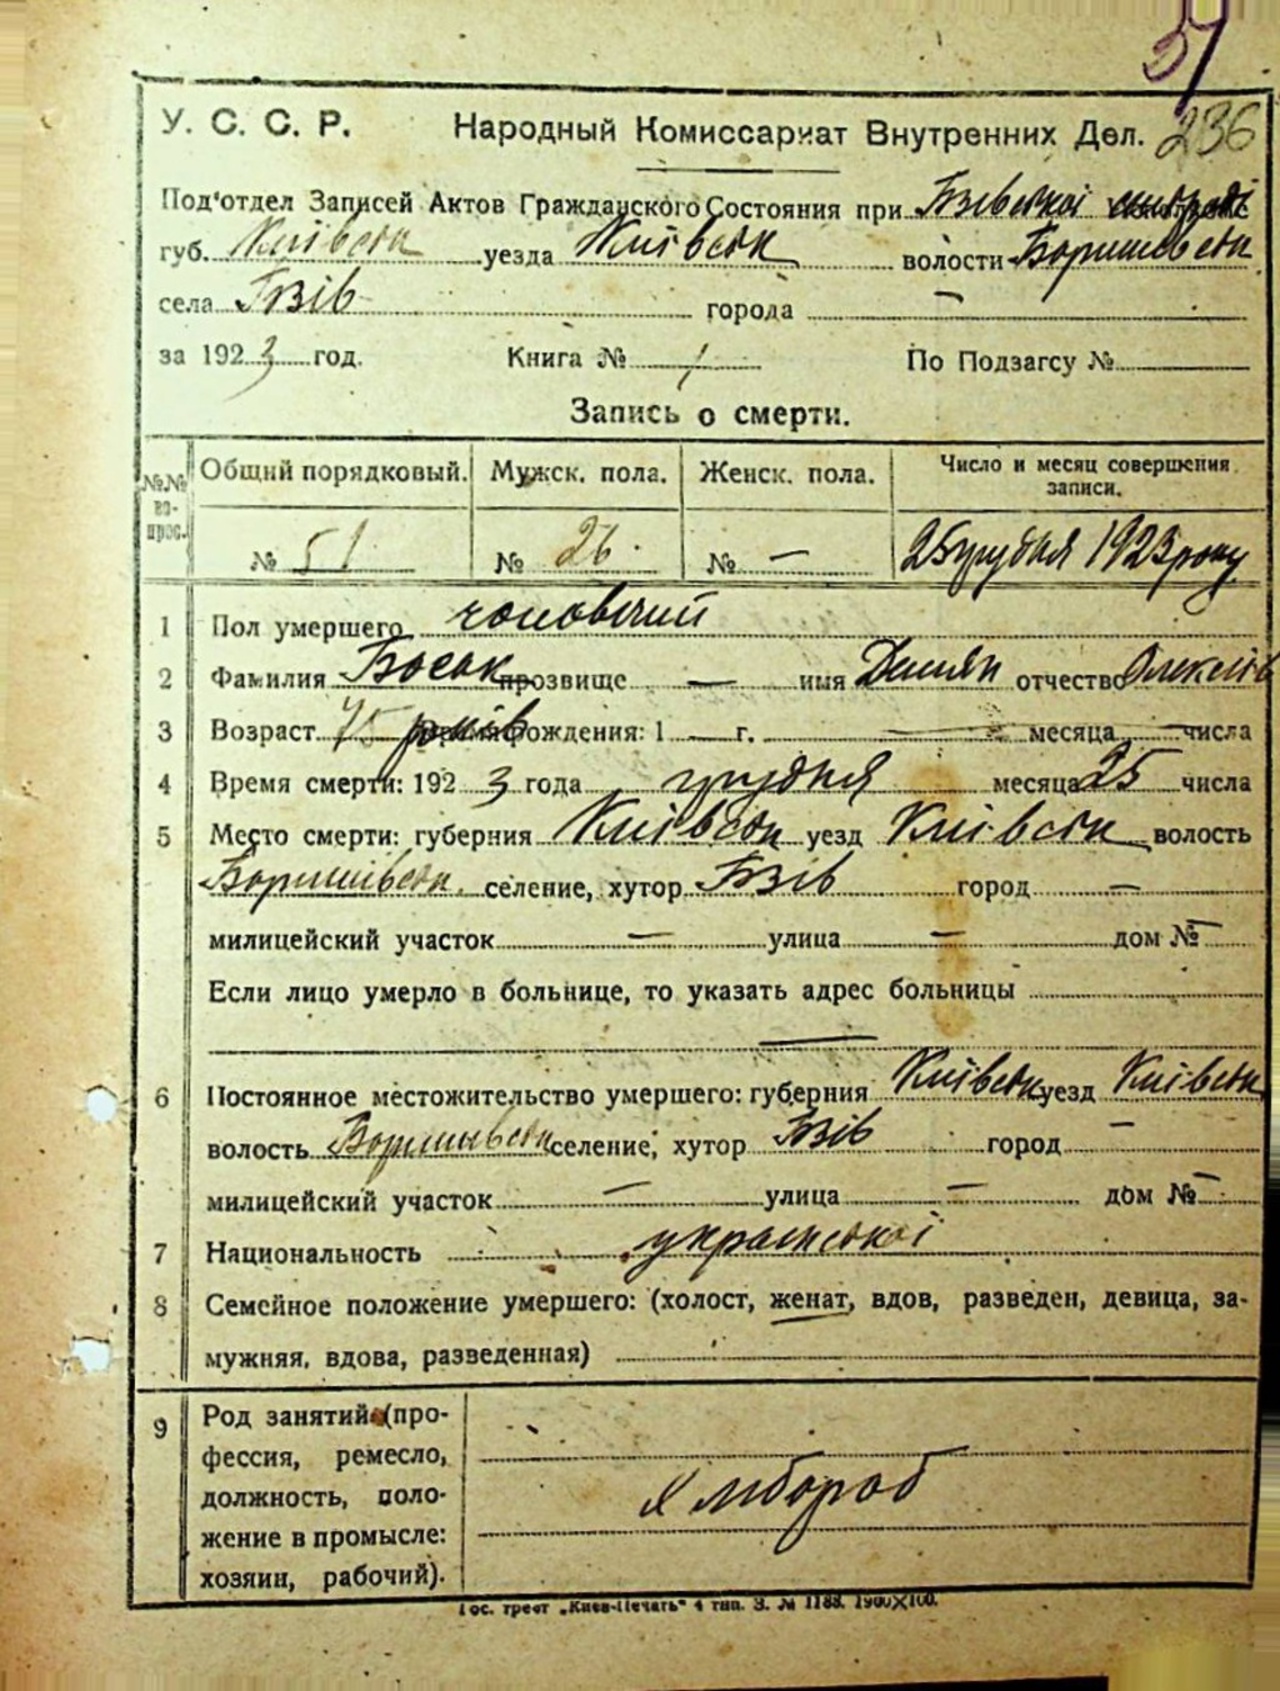 37
У. С. С. Р. Народный Комиссариат Внутренних Дел. 236
Под'отдел Записей Актов Гражданского Состояния при Бзівської сильраді
губ. Київськ уезда Київськ волости
села Бзів города —
за 1923 год. Книга № 1 По Подзагсу №
Запись о смерти.
№№ вопрос. Общий порядковый. Мужск. пола. Женск. пола. Число и месяц совершения записи.
№ 51 № 26 № — 25 грудня 1923 року
1 Пол умершего чоловічий
2 Фамилия Босак прозвище — имя Демян отчество Олексіїв
3 Возраст 75 років Время рождения: 1 — г. — месяца — числа
4 Время смерти: 1923 года грудня месяца 25 числа
5 Место смерти: губерния Київськ уезд Київськ волость
селение, хутор Бзів город —
милицейский участок — улица — дом № —
Если лицо умерло в больнице, то указать адрес больницы
—
6 Постоянное местожительство умершего: губерния Київськ уезд Київськ
волость селение, хутор Бзів город —
милицейский участок — улица — дом № —
7 Национальность української
8 Семейное положение умершего: (холост, женат, вдов, разведен, девица, за-
мужняя, вдова, разведенная)
9 Род занятий (про-
фессия, ремесло,
должность, поло-
жение в промысле:
хозяин, рабочий).
Хлібороб
Гос. трест „Киев-Печать" 4 тип. З. № 1188. 1900×100.